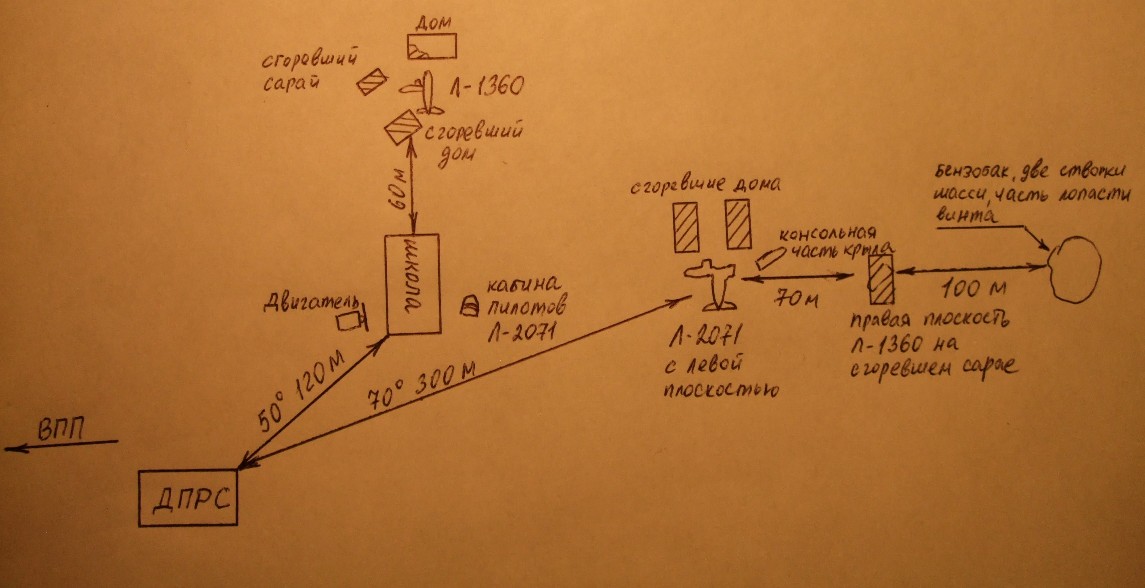 дом
сгоревший
сарай
Л-1360
сгоревший
дом
60м
школа
Двигатель
кабина
пилотов
Л-2071
50° 120 м
70° 300 м
ВПП
ДПРС
сгоревшие дома
консольная
часть крыла
70м
Л-2071
с левой
плоскостью
правая плоскость
Л-1360 на
сгоревшем сарае
100 м
Бензобак, две створки
шасси, часть лопасти
винта